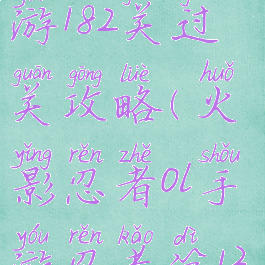 游182关过
guān gōng lüè huǒ
关攻略(火
yǐng rěn zhě shǒu
影忍者0l手
yóu rěn kǎo dì